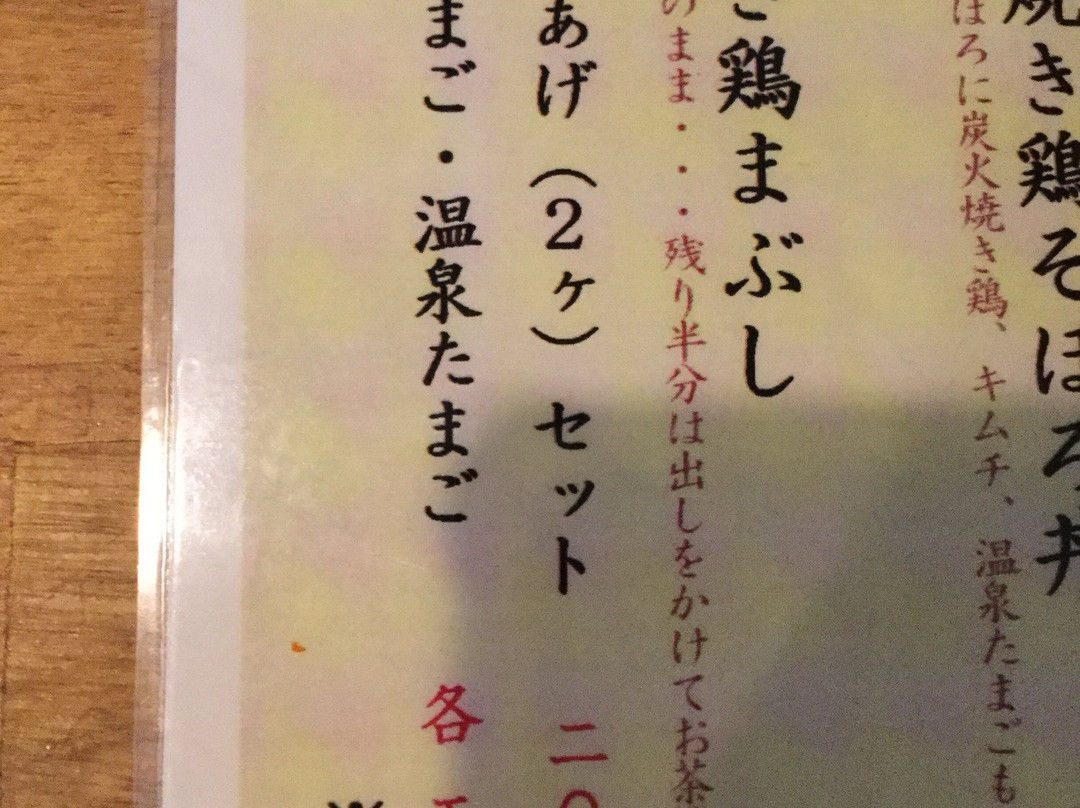 焼き鶏そぼろ丼
ぼろに炭火焼き鶏、キムチ、温泉たまごも
き鶏まぶし
のまま・・・残り半分は出しをかけてお茶
あげ（2ヶ）セット 二〇
まご・温泉たまご 各
※